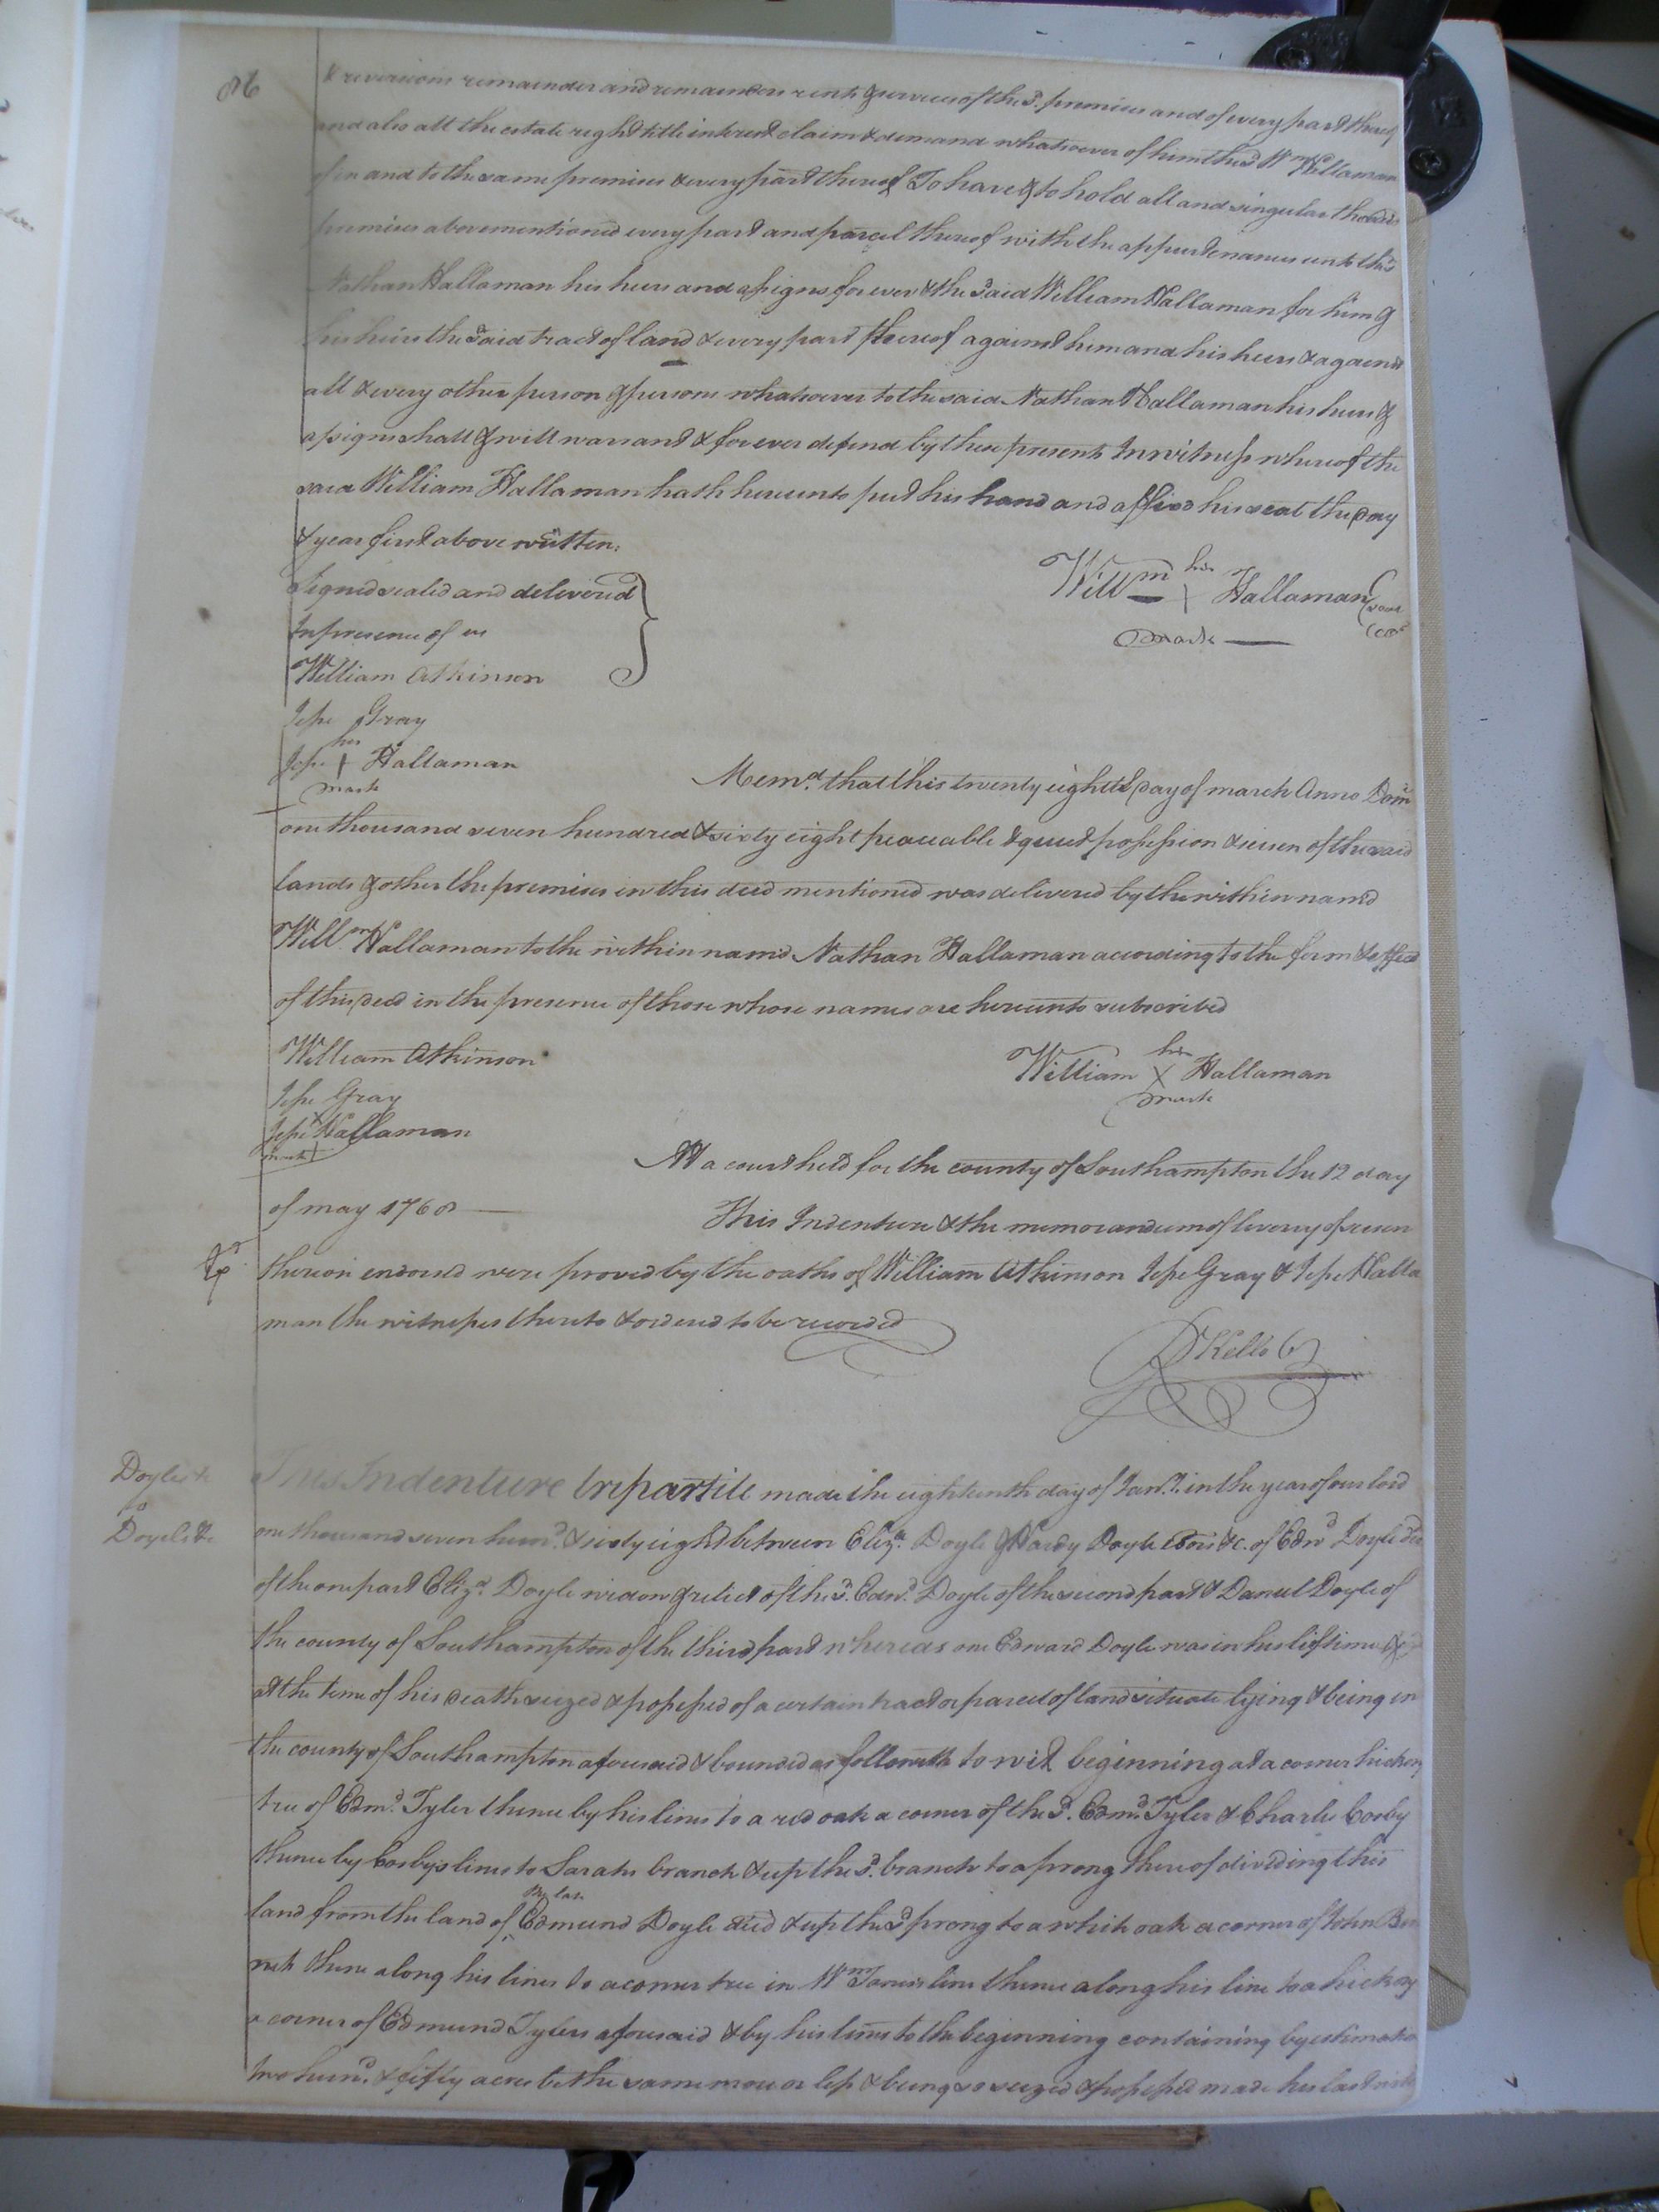 86
& reversions remainder and remainders rents & services of the sd. premises and of every part thereof
and also all the estate right title interest claim & demand whatsoever of him the sd Wm Hallaman
of in and to the same premises & every part thereof To have & to hold all and singular the said
premises abovementioned every part and parcel thereof with the appurtenances unto the sd
Nathan Hallaman his heirs and assigns forever & the said William Hallaman for him &
his heirs the said tract of land & every part thereof against him and his heirs & against
all & every other person & persons whatsoever to the said Nathan Hallaman his heirs &
assigns shall & will warrant & forever defend by these presents In witness whereof the
said William Hallaman hath hereunto put his hand and affixd his seal the day
& year first above written.
Signed sealed and delivered
In presence of us
Willm his Hallaman
mark
William Atkinson
Jesse Gray
his
Jesse + Hallaman
mark
Memd. that this twenty eighth day of march Anno Dom
one thousand seven hundred & sixty eight peaceable & quiet possession & seisen of the said
lands & other the premises in this deed mentioned was delivered by the within named
Willm Hallaman to the within namd Nathan Hallaman according to the form & effect
of this deed in the presence of those whose names are hereunto subscribed
William Atkinson
his
William X Hallaman
mark
Jesse Gray
Jesse Hallaman
mark
At a court held for the county of Southampton the 12 day
of may 1768
This Indenture & the memorandum of livery of seisen
thereon endorsed were proved by the oaths of William Atkinson Jesse Gray & Jesse Halla
man the witnesses thereto & ordered to be recorded
Doyle &c
to
Doyle
This Indenture tripartite made the eighteenth day of in the year of our lord
one thousand seven hund. & sixty eight between Eliza. Doyle & Hardy Doyle &c. of Edwd Doyle decd
of the one part Eliza. Doyle widow & relict of the sd. Edwd. Doyle of the second part & Daniel Doyle of
the county of Southampton of the third part whereas one Edward Doyle was in his lifetime &
at the time of his death seized & possessed of a certain tract or parcel of land situate lying & being in
the county of Southampton aforesaid & bounded as followeth to wit beginning at a corner hickory
tree of Edmd. Tyler thence by his lines to a red oak a corner of the sd. Edmd. Tyler & Charles Cosby
thence by Cosbys lines to Sarahs branch & up the sd. branch to a prong thereof dividing this
land from the land of Edmund Doyle decd & up the sd prong to a white oak a corner of John
thence along his lines to a corner tree in Wm line thence along his line to a hickory
a corner of Edmund Tylers aforesaid & by his lines to the beginning containing by estimation
two hund. & fifty acres be the same more or less & being so seized & possessed made his last will